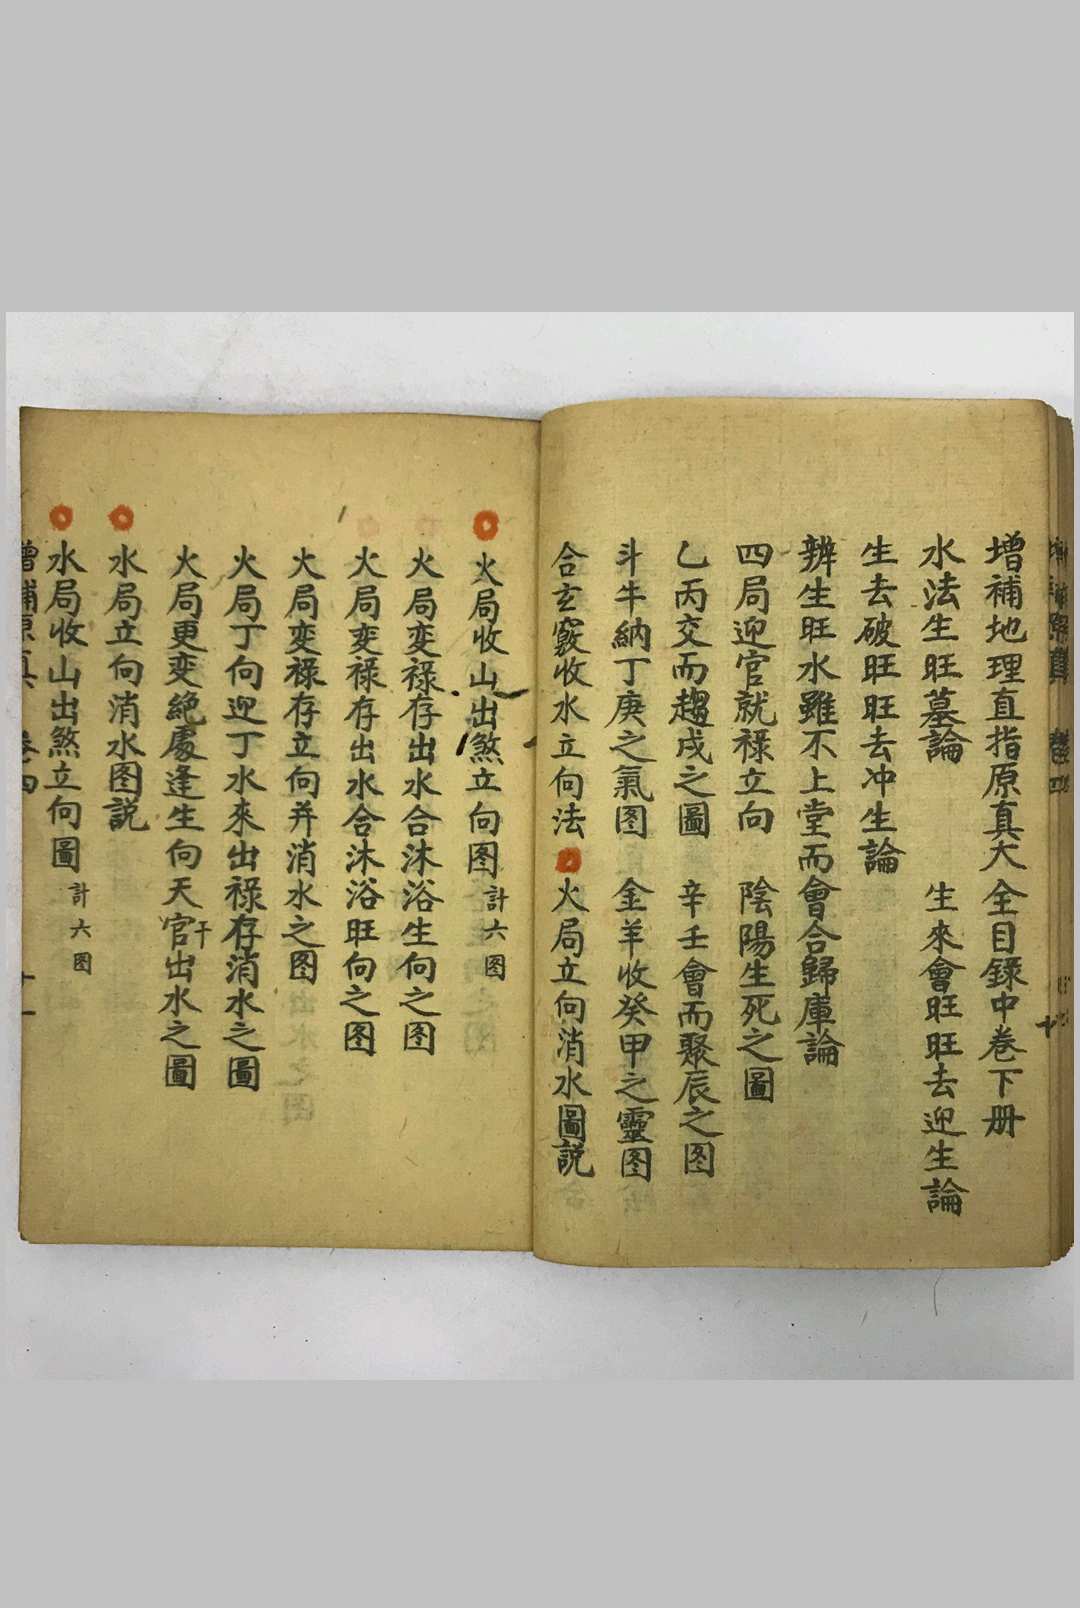 增補地理直指原真大全目錄中卷下册
水法生旺墓論　生來會旺旺去迎生論
生去破旺旺去冲生論
辨生旺水雖不上堂而會合歸庫論
四局迎官就禄立向　陰陽生死之圖
乙丙交而趨戌之圖　辛壬會而聚辰之图
斗牛納丁庚之氣图　金羊收癸甲之靈图
合玄竅收水立向法　火局立向消水圖説
火局收山出煞立向图 計六图
火局变禄存出水合沐浴生向之图
火局变禄存出水合沐浴旺向之图
火局变禄存立向并消水之图
火局丁向迎丁水來出禄存消水之圖
火局更变絶處逢生向天官干出水之圖
水局立向消水图説
水局收山出煞立向圖 計六图